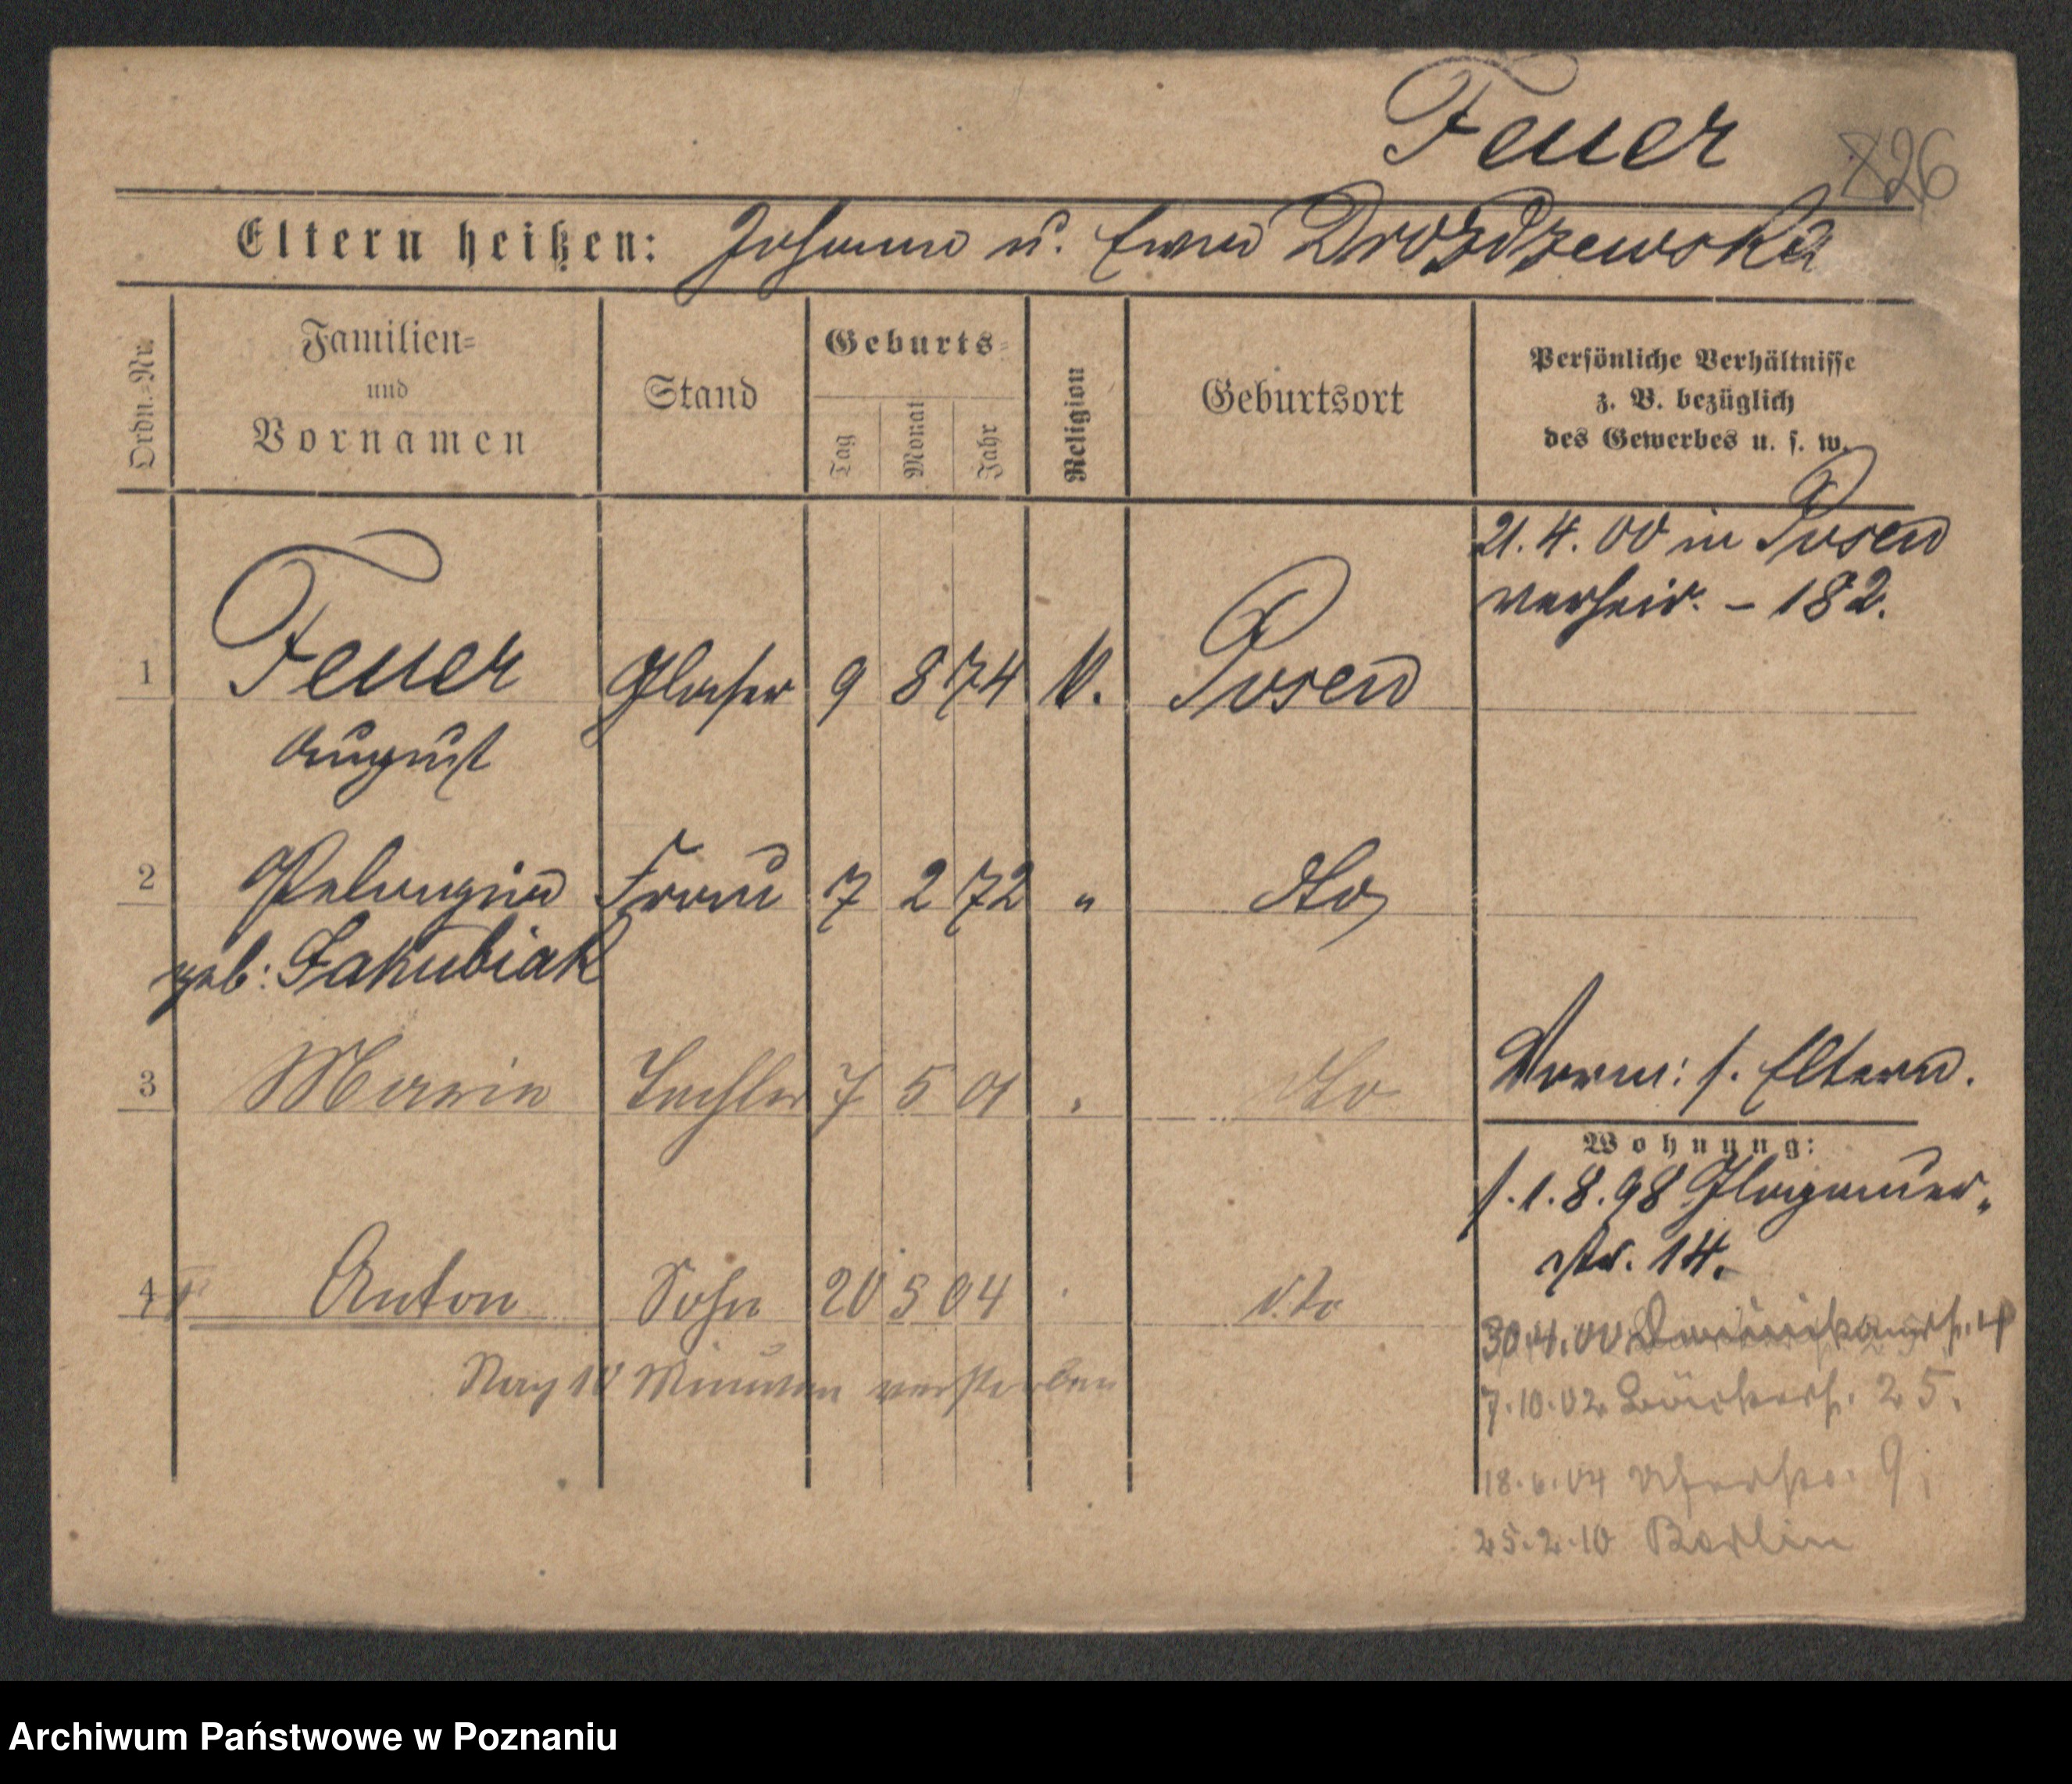 Feuer
826
Eltern heißen: Johann u. Ewa Drozdzewska
Ordn.-Nr.
Familien-
und
Vornamen
Stand
Geburts-
Tag
Monat
Jahr
Religion
Geburtsort
Persönliche Verhältnisse
z. B. bezüglich
des Gewerbes u. s. w.
21. 4. 00 in Posen
verheir. - 182.
1 Feuer Glaser 9 8 74 k. Posen
August
2 Pelagia Frau 7 2 72 " dto
geb: Jakubiak
3 Maria Tochter 7 5 01 " dto
Vorm: s. Eltern.
Wohnung:
s. 1. 8. 98 Glogauer-
str. 14.
4 Anton Sohn 20 5 04 dto
Nach 10 Minuten verstorben
30.4.00
7.10.02 Bäckerst. 25.
18.6.04 9.
25.2.10 Berlin
Archiwum Państwowe w Poznaniu